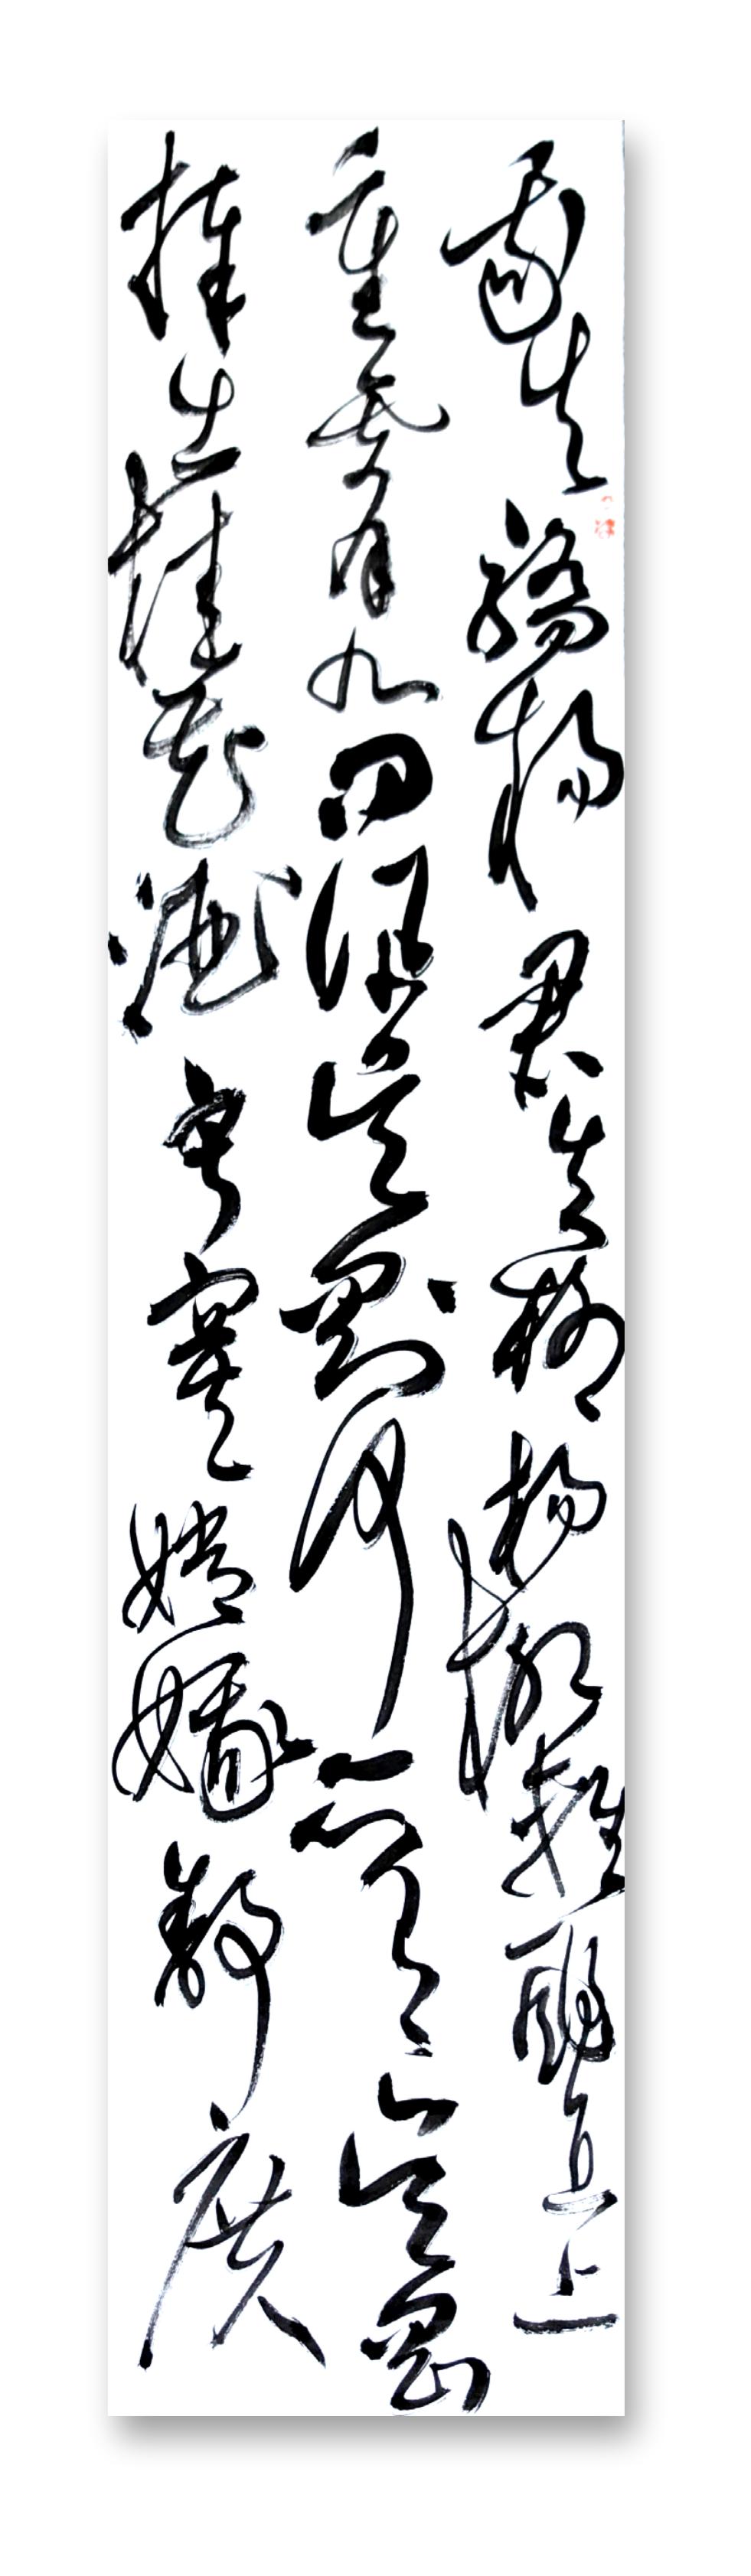 我失骄杨君失柳杨柳轻飏直上
重霄九问讯吴刚何所有吴刚
捧出桂花酒寂寞嫦娥舒广